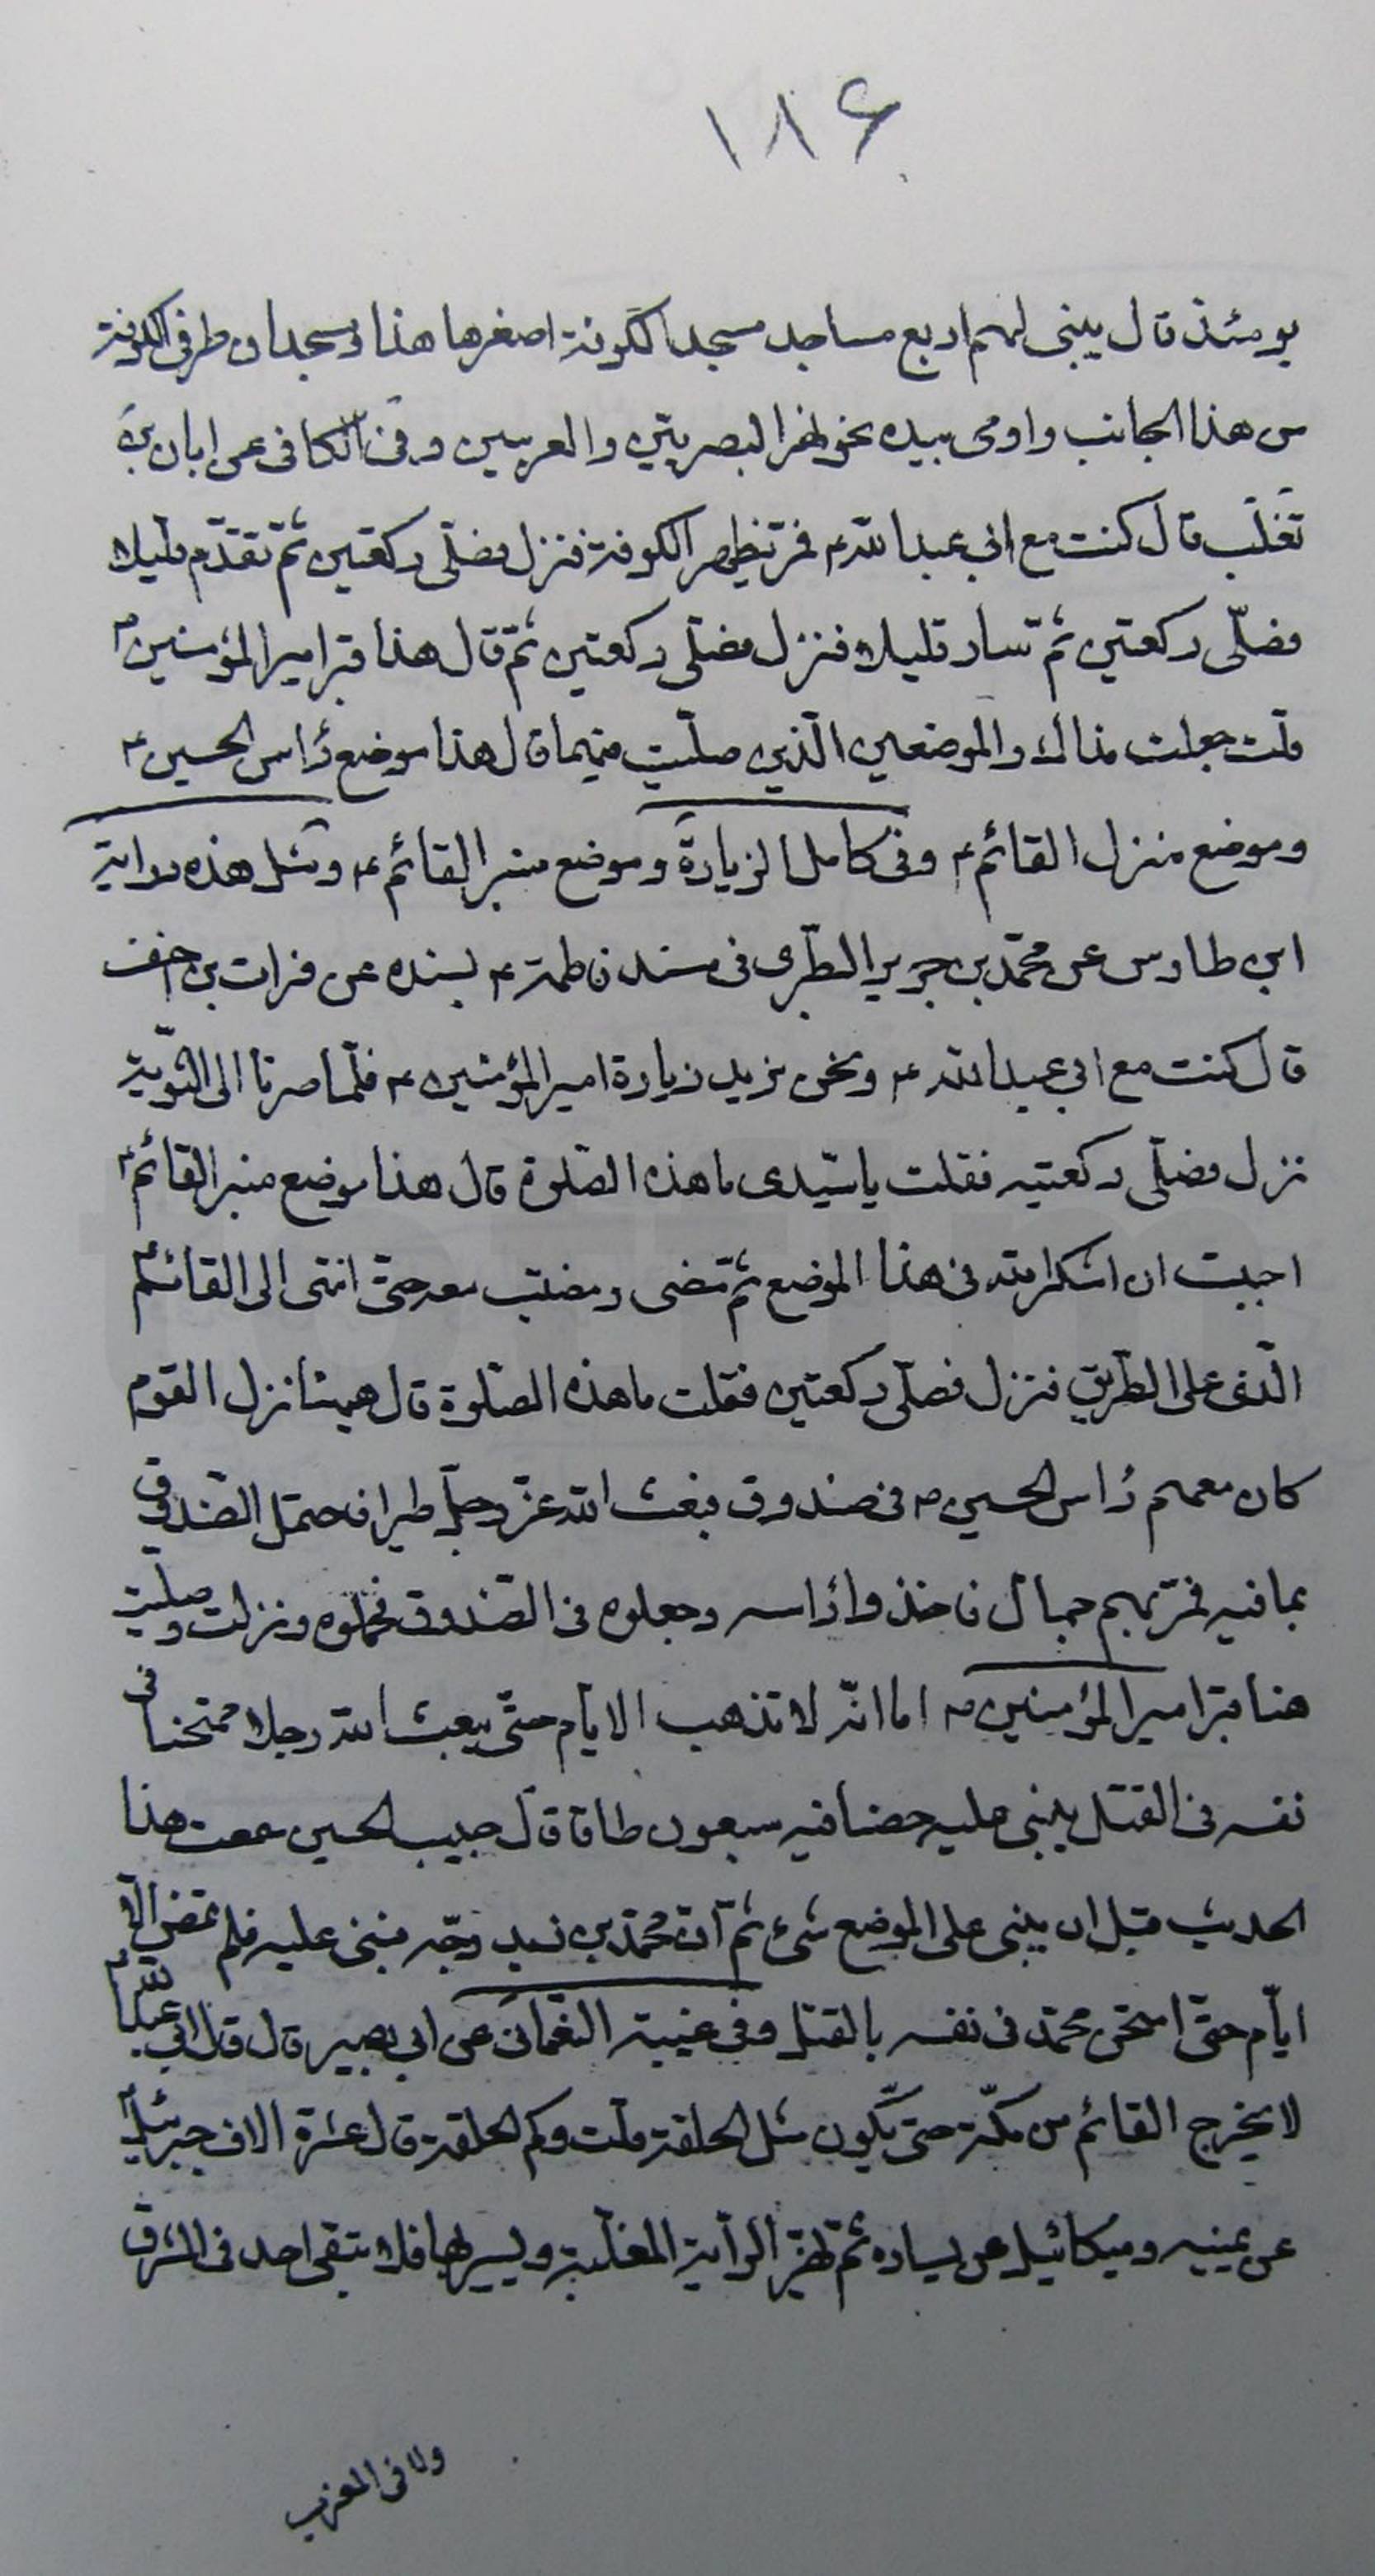 ١٨۶
يومئذ قال يبنى لهم اربع مساجد مسجد الكوفة اصغرها هذا ومسجدان طرفى الكوفة
من هذا الجانب واومى بيده نحو نهر البصريين والغريين وفى الكافى عن ابان بن
تغلب قال كنت مع ابى عبد الله ع فمر بظهر الكوفة فنزل فصلّى ركعتين ثمّ تقدّم قليلا
فصلّى ركعتين ثمّ سار قليلا فنزل فصلّى ركعتين ثمّ قال هذا قبر امير المؤمنين ع
قلت جعلت فداك والموضعين الّذين صلّيت فيهما قال هذا موضع راس الحسين ع
وموضع منزل القائم ع وفى كامل الزيارة وموضع منبر القائم ع ومثل هذه رواية
ابن طاوس عن محمّد بن جرير الطبرى فى مسند فاطمة ع بسنده عن فرات بن احنف
قال كنت مع ابي عبد الله ع ونحن نريد زيارة امير المؤمنين ع فلمّا صرنا الى الثويّة
نزل فصلّى ركعتين فقلت يا سيّدى ما هذه الصّلوة قال هذا موضع منبر القائم ع
احببت ان اشكر الله فى هذا الموضع ثمّ مضى ومضيت معه حتى انتهى الى القائم
الّذى على الطريق فنزل فصلّى ركعتين فقلت ما هذه الصّلوة قال هيهنا نزل القوم
كان معهم راس الحسين ع فى صندوق فبعث الله عزّ وجلّ طيرا فاحتمل الصّندوق
بما فيه فمرّ بهم جمال فاخذوا راسه وجعلوه فى الصّندوق فحملوه ونزلت وصلّيت
هنا قبر امير المؤمنين ع اما انّه لا تذهب الايّام حتّى يبعث الله رجلا ممتحنا فى
نفسه فى القتل يبنى عليه حصنا فيه سبعون طاقا قال حبيب الحسين سمعت هذا
الحديث قبل ان يبنى على الموضع شئ ثمّ انّ محمّد بن زيد وجّه فبنى عليه فلم تمض الّا
ايّام حتى امتحن محمّد فى نفسه بالقتل وفى غيبة النعمانى عن ابى بصير قال قال ابى عبد الله ع
لا يخرج القائم من مكّة حتى يكون مثل الحلقة قلت وكم الحلقة قال عشرة الاف جبرئيل
عن يمينه وميكائيل عن يساره ثمّ يهزّ الراية المغلّبة ويسير بها فلا يبقى احد فى المشرق
ولا فى المغرب